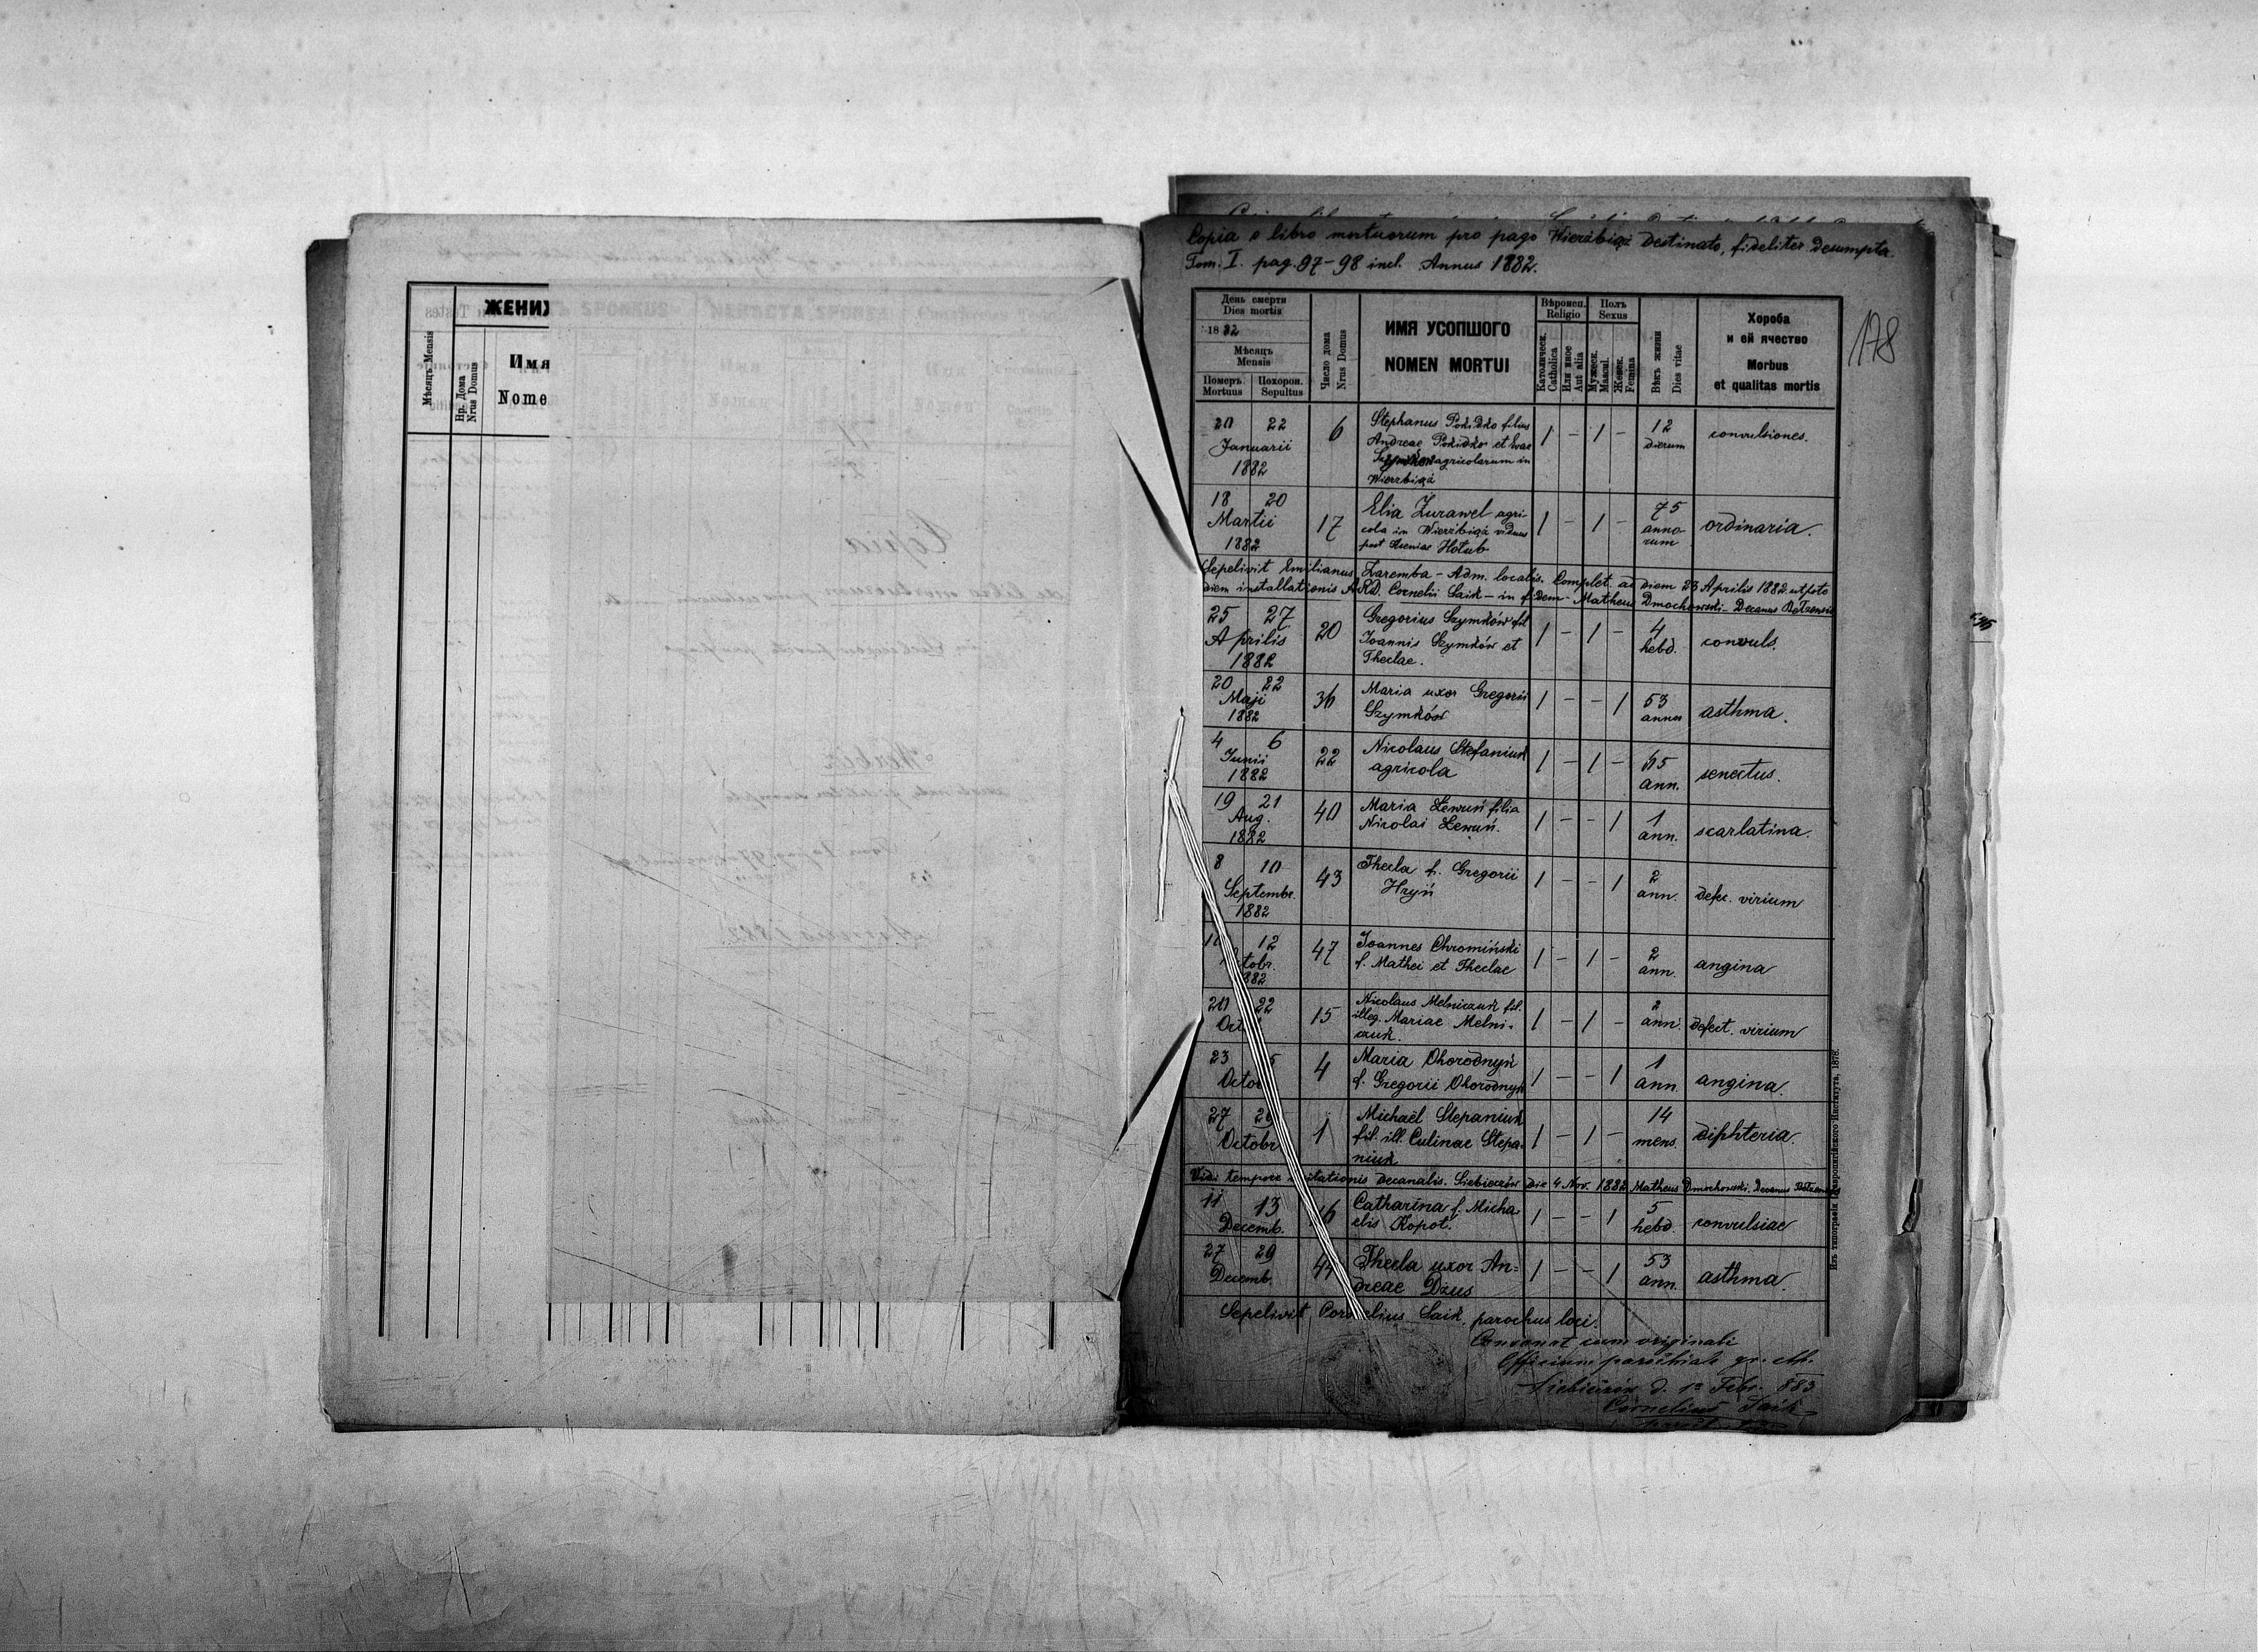 Copia e libro mortuorum pro pago Wierzbiąż destinato, fideliter desumpta.
Tom. I. pag. 97-98 incl. Annus 1882.
178
День смерти
Dies mortis
1882
Мѣсяцъ
Mensis
Померъ
Mortuus
Похорон.
Sepultus
Число дома
Nrus Domus
ИМЯ УСОПШОГО
NOMEN MORTUI
Вѣроисп.
Religio
Католическ.
Catholica
Или иное
Aut alia
Полъ
Sexus
Мужеск.
Mascul.
Женск.
Femina
Вѣкъ жизни
Dies vitae
Хороба
и ей ячество
Morbus
et qualitas mortis
20 22 6 Stephanus Pokidko filius 1 - 1 - 12 convulsiones.
Januarii Andreae Pokidko et Evae dierum
1882 agricolarum in
Wierzbiąż
18 20 17 Elia Żurawel agri- 1 - 1 - 75 ordinaria.
Martii cola in Wierzbiąż viduus anno
1882 post Hołub rum
Sepelivit Emilianus Zaremba - Adm. localis. Complet. ad diem 23 Aprilis 1882 utpote
diem installationis A.R.D. Cornelii Saik - in fidem - Matheus Dmochowski - Decanus Bełzensis
25 27 20 Gregorius Szymków fil 1 - 1 - 4 convuls.
Aprilis Joannis Szymków et hebd.
1882 Theclae.
20 22 36 Maria uxor Gregorii 1 - - 1 53 asthma.
Maji Szymków annos
1882
4 6 22 Nicolaus Stefaniuk 1 - 1 - 65 senectus.
Junii agricola ann.
1882
19 21 40 Maria Lewuń filia 1 - - 1 1 scarlatina.
Aug. Nicolai Lewuń. ann.
1882
8 10 43 Thecla f. Gregorii 1 - - 1 2 defec. virium
Septembr. Hryń ann.
1882
12 47 Joannes Chromiński 1 - 1 - 2 angina
f. Mathei et Theclae ann.
20 22 15 Nicolaus Melniczuk fil. 1 - 1 - 2 defect. virium
illeg. Mariae Melni- ann.
czuk.
23 4 Maria Ohorodnyk 1 - - 1 1 angina.
f. Gregorii Ohorodnyk ann.
27 29 1 Michaël Stepaniuk 1 - 1 - 14 diphteria.
Octobr fil. ill. Culinae Stepa- mens.
niuk
Vidi tempore visitationis decanalis. Siebieczów die 4 Nov. 1882 Matheus Dmochowski. Decanus Bełzensis
11 13 Catharina f. Micha- 1 - - 1 5 convulsiae
Decemb. elis Kopot. hebd.
27 29 Thecla uxor An= 1 - - 1 53 asthma.
Decemb. dreae Dzus ann.
Sepelivit Cornelius Saik, parochus loci.
Concordat cum originali
Officium parochiale gr. cth.
Siebieczów d. Febr. 883
Cornelius Saik
Изъ типографіи Ставропигійского Института, 1878.
Мѣсяцъ Mensis
Нр. Дома
Nrus Domus
ЖЕНИХ
Имя
Nome